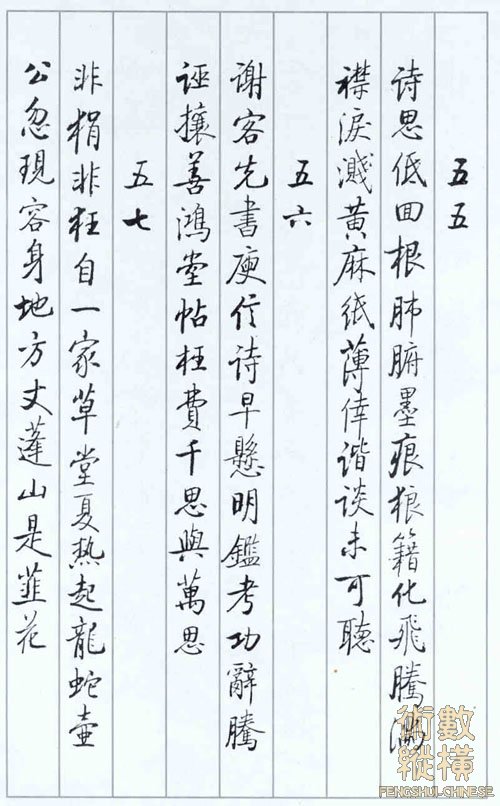 五五
诗思低回根肺腑墨痕狼籍化飛騰滿
襟淚濺黃麻紙薄倖谐谈未可聽
五六
谢客先書庾信诗早懸明鑑考功辭騰
诬攘善鴻堂帖枉費千思與萬思
五七
非狷非狂自一家草堂夏热起龍蛇壶
公忽現容身地方丈蓬山是韮花
術數
縱橫
FENGSHUI-CHINESE